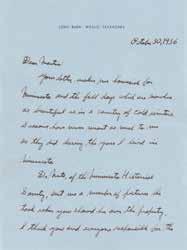 LONG BARN, WASCO, TENNESSEE
October 30, 1956
Dear Martin:
Your letter makes me homesick for
Minnesota and the fall days which are nowhere
as beautiful as in a country of cold winters.
Seasons have never meant as much to me
as they did during the years I lived in
Minnesota.
of the Minnesota Historical
Society, sent me a number of pictures he
took when you showed him over the property.
I thank you and everyone responsible for the